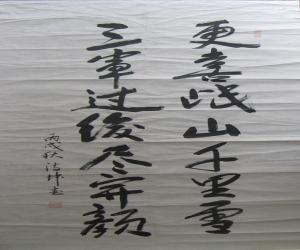 更喜岷山千里雪
三軍过後尽开颜
丙戌秋